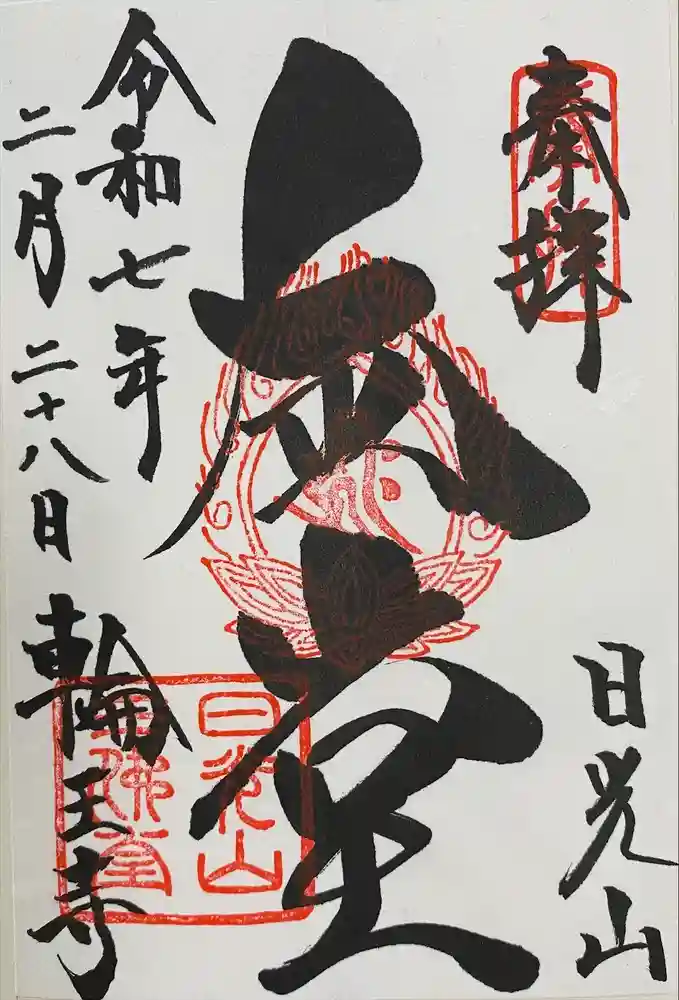 奉拝
日光山
金堂
令和七年
二月二十八日
輪王寺
日光山
三佛堂